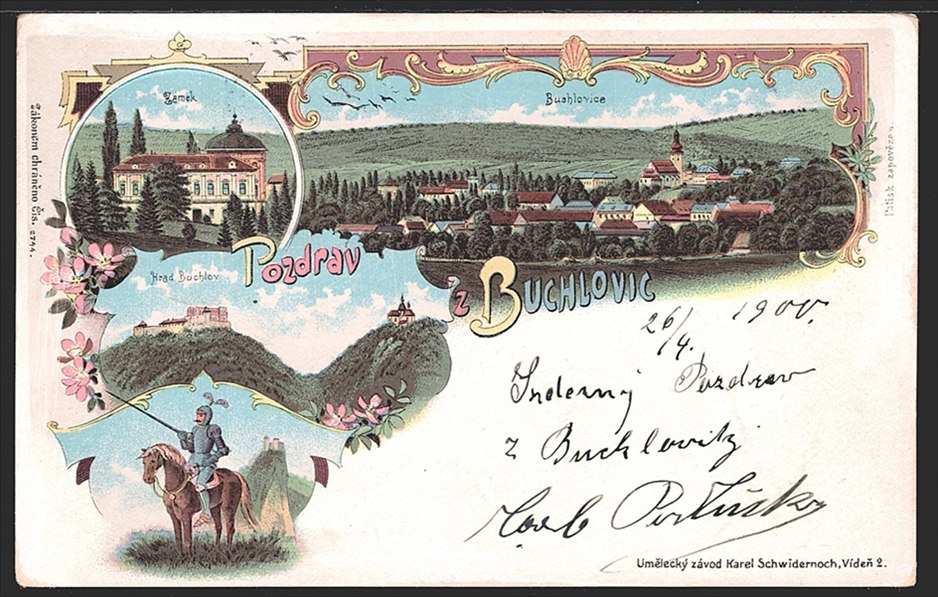 Zámek
Buchlovice
Zákonem chráněno čís. 2744.
Patisk zapovězen.
Hrad Buchlov
Pozdrav
z BUCHLOVIC
26/4. 1900.
Srdečný Pozdrav
z Buchlovitz
Umělecký závod Karel Schwidernoch, Vídeň 2.